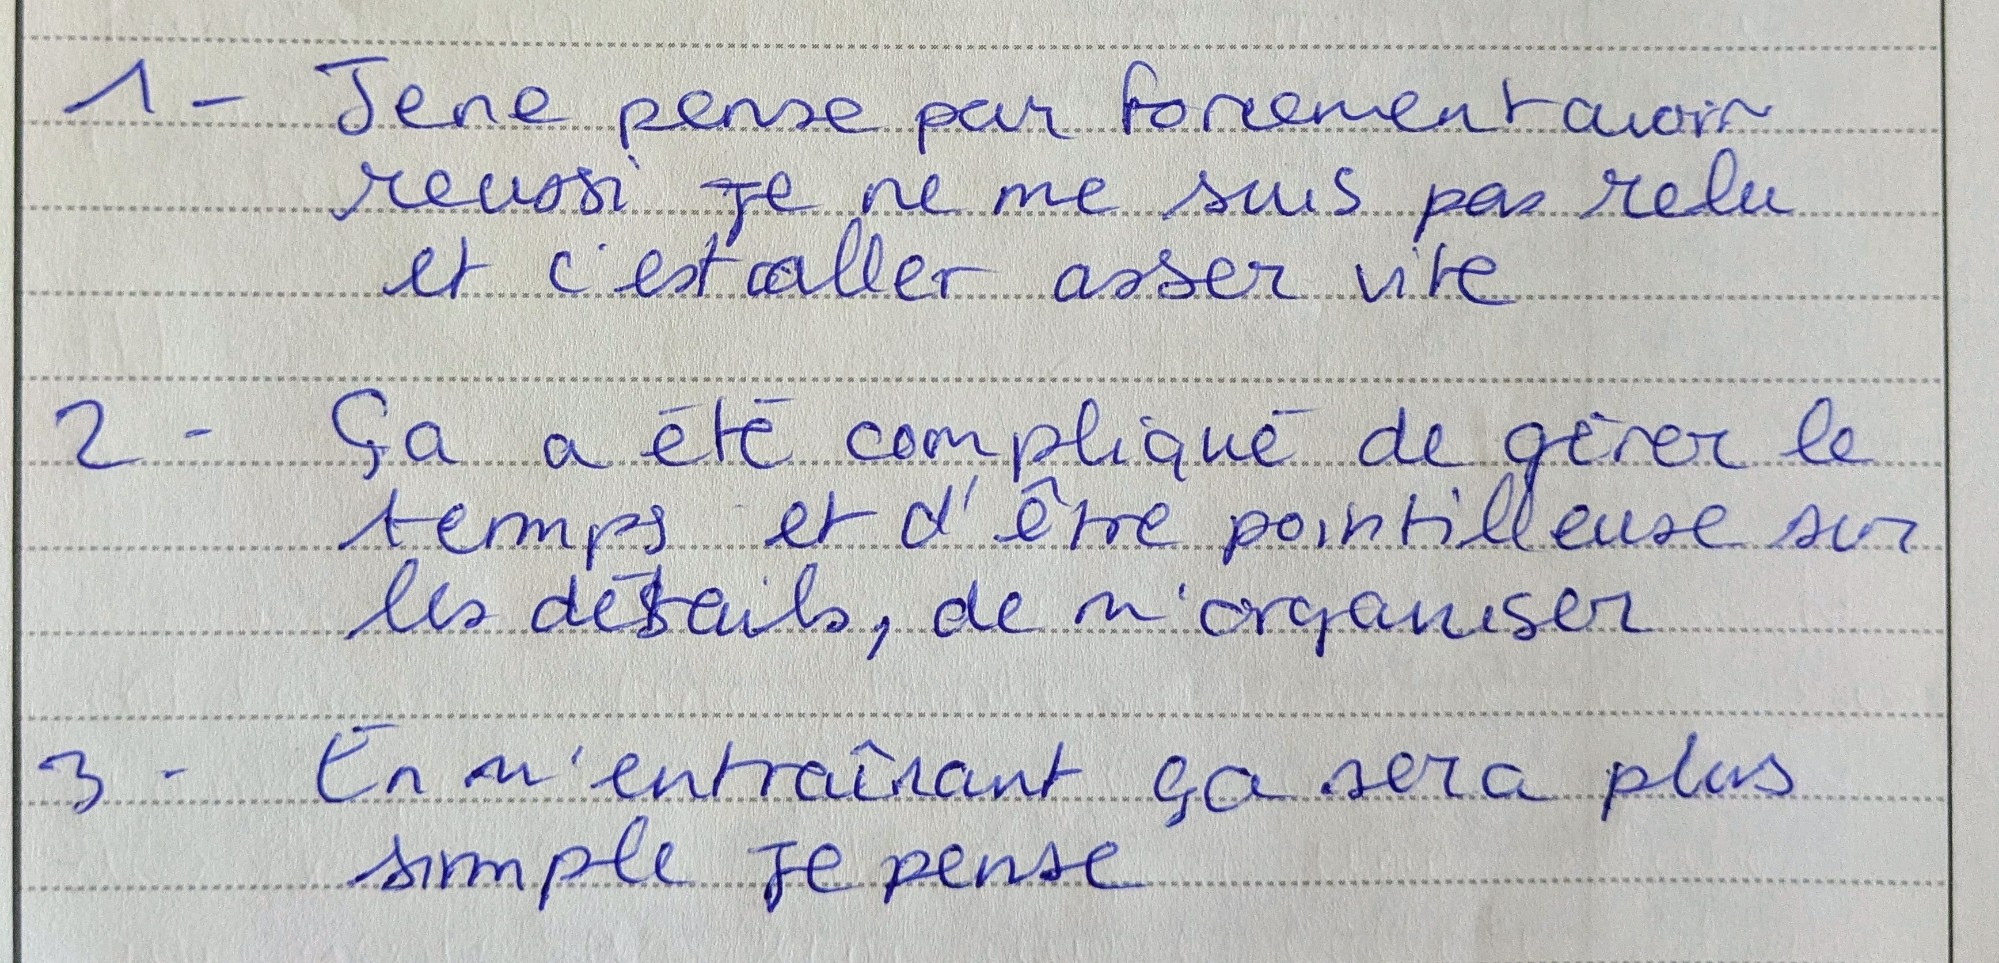 1 - Je ne pense pas forcement avoir
reussi je ne me suis pas relu
et c'est aller asser vite
2 - Ça a été compliqué de gérer le
temps et d'être pointilleuse sur
les détails, de m'organiser
3 - En m'entraînant ça sera plus
simple je pense